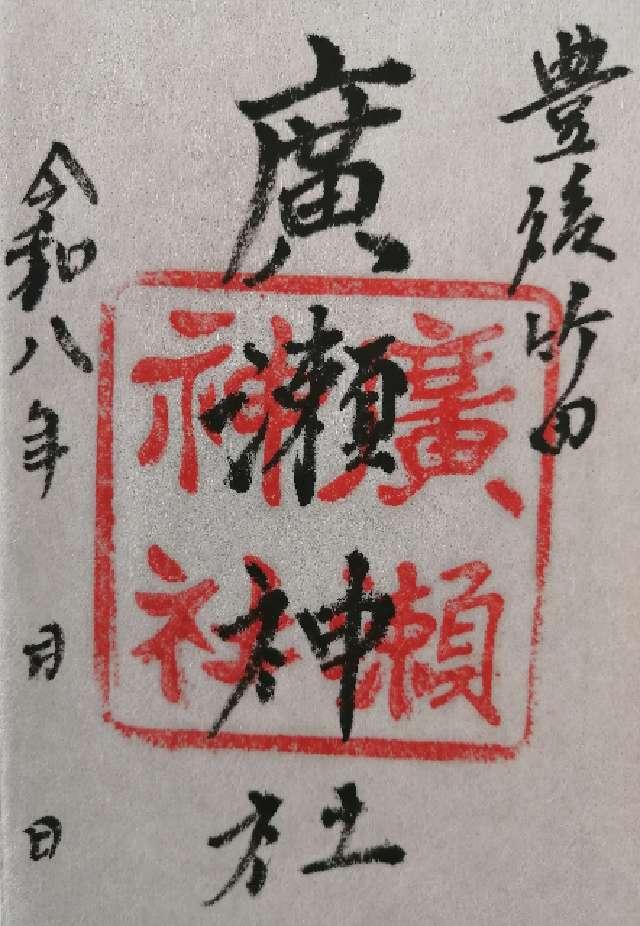 豊後竹田
廣瀬神社
廣瀬
神社
令和八年 月 日